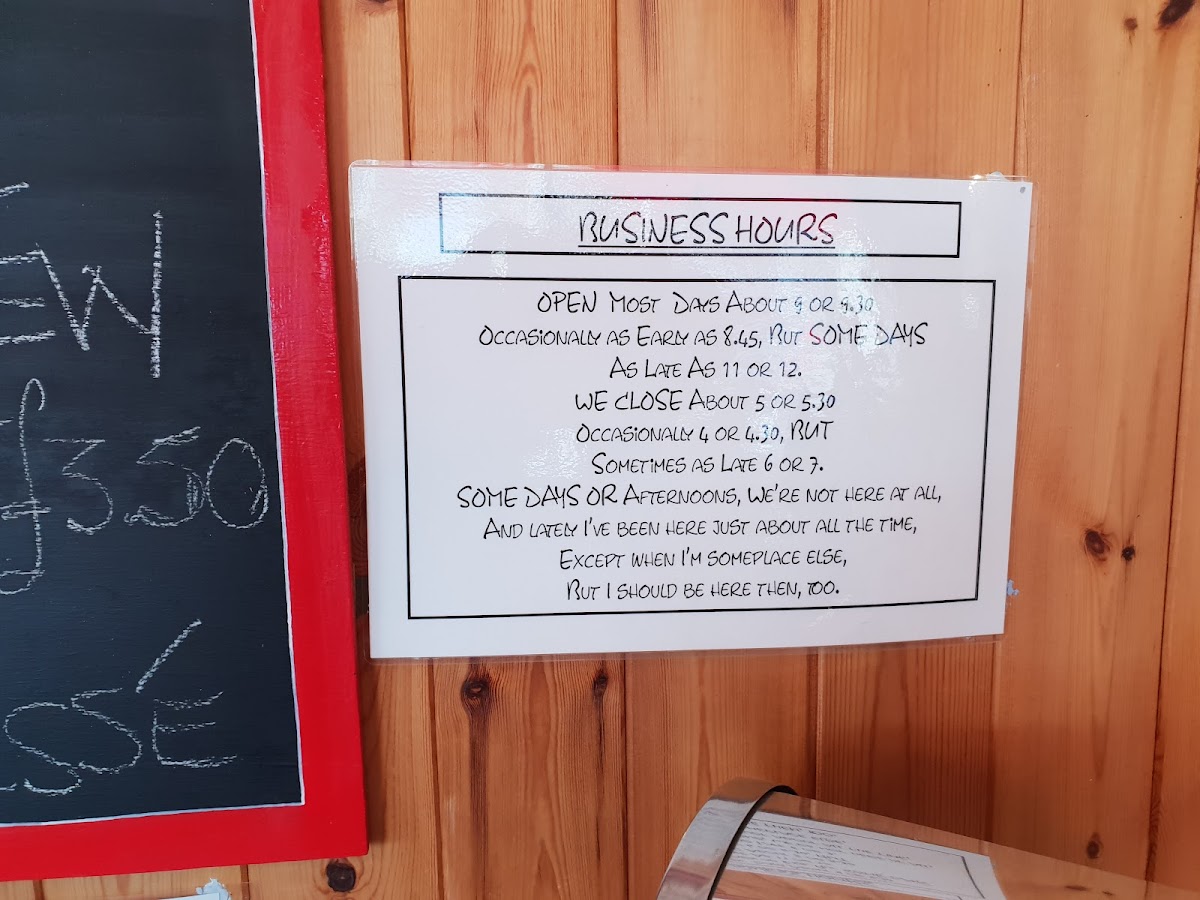 EW
£3.50
SSÉ
BUSINESS HOURS
OPEN MOST DAYS ABOUT 9 OR 9.30
OCCASIONALLY AS EARLY AS 8.45, BUT SOME DAYS
AS LATE AS 11 OR 12.
WE CLOSE ABOUT 5 OR 5.30
OCCASIONALLY 4 OR 4.30, BUT
SOMETIMES AS LATE 6 OR 7.
SOME DAYS OR AFTERNOONS, WE'RE NOT HERE AT ALL,
AND LATELY I'VE BEEN HERE JUST ABOUT ALL THE TIME,
EXCEPT WHEN I'M SOMEPLACE ELSE,
BUT I SHOULD BE HERE THEN, TOO.